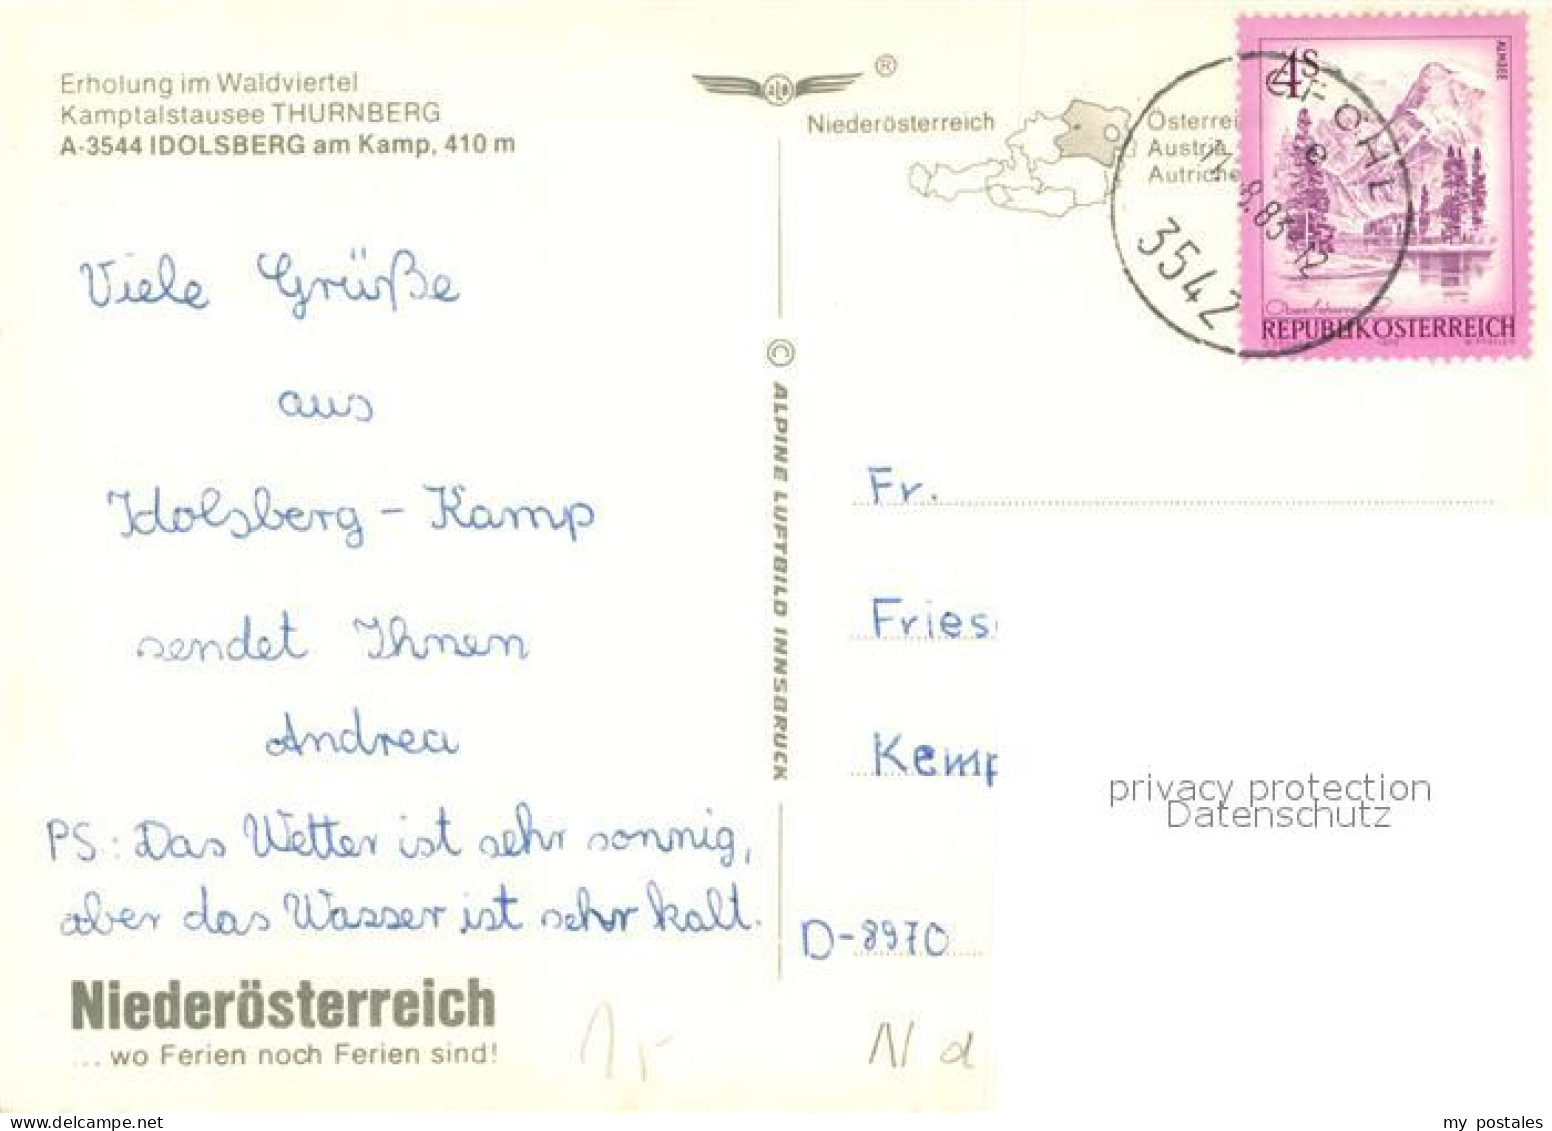 Erholung im Waldviertel
Kamptalstausee THURNBERG
A-3544 IDOLSBERG am Kamp, 410 m
®
Niederösterreich
Österrei
Austria
Autriche
4S
ALMSEE
REPUBLIK ÖSTERREICH
GFÖHL
8.83-12
3542
Viele Grüße
aus
Idolsberg - Kamp
sendet Ihnen
Andrea
PS.: Das Wetter ist sehr sonnig,
aber das Wasser ist sehr kalt.
© ALPINE LUFTBILD INNSBRUCK
Fr.
Fries
Kemp
D-8970
privacy protection
Datenschutz
Niederösterreich
... wo Ferien noch Ferien sind!
N d
my postales